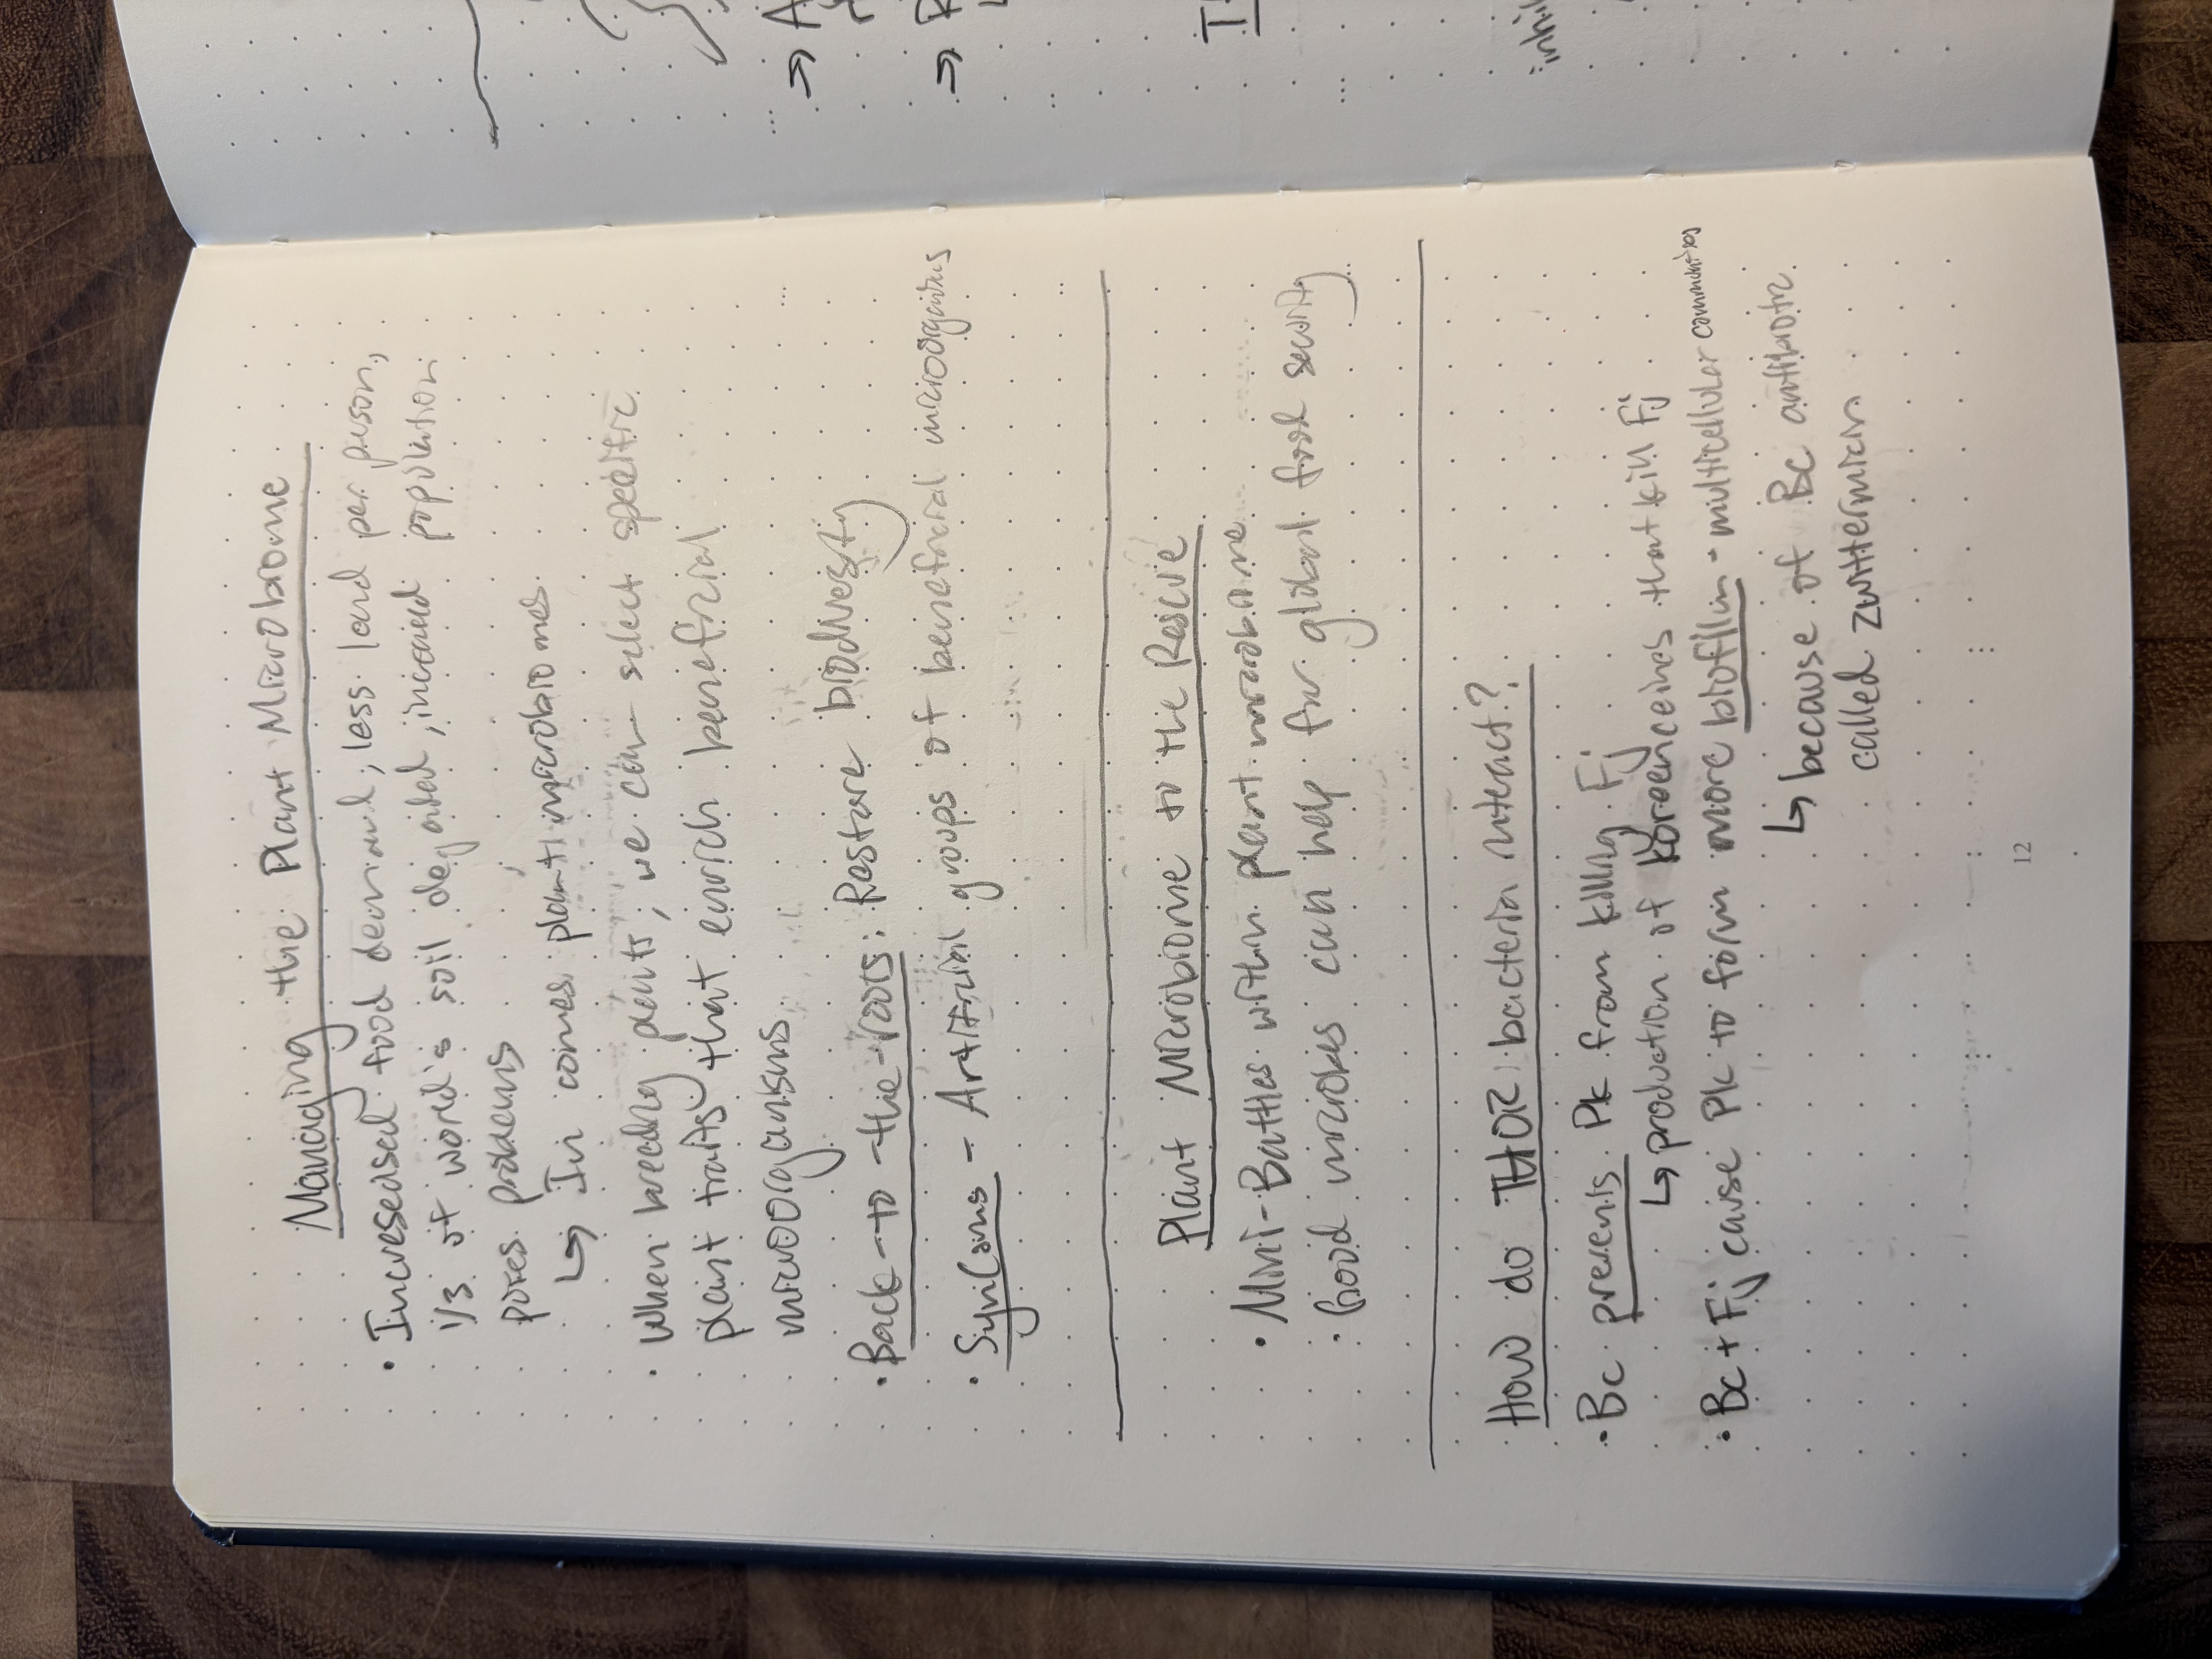 Managing the Plant Microbiome
• Increseased food demand, less land per person,
1/3 of world's soil degraded, increased population
poses problems
↳ In comes plant microbiomes
• When breeding plants, we can select specific
plant traits that enrich beneficial
microorganisms
• Back-to-the-roots: Restore biodiversity
• SynComs - Artificial groups of beneficial microorganisms
Plant Microbiome to the Rescue
• Mini-Battles within plant microbiome
• Good microbes can help for global food security
How do THOR bacteria interact?
• Bc prevents Pk from killing Fj
↳ production of koreenceines that kill Fj
• Bc + Fj cause Pk to form more biofilm - multicellular communities
↳ because of Bc antibiotic
called zwittermicin
12
→ A
→ R
inhi